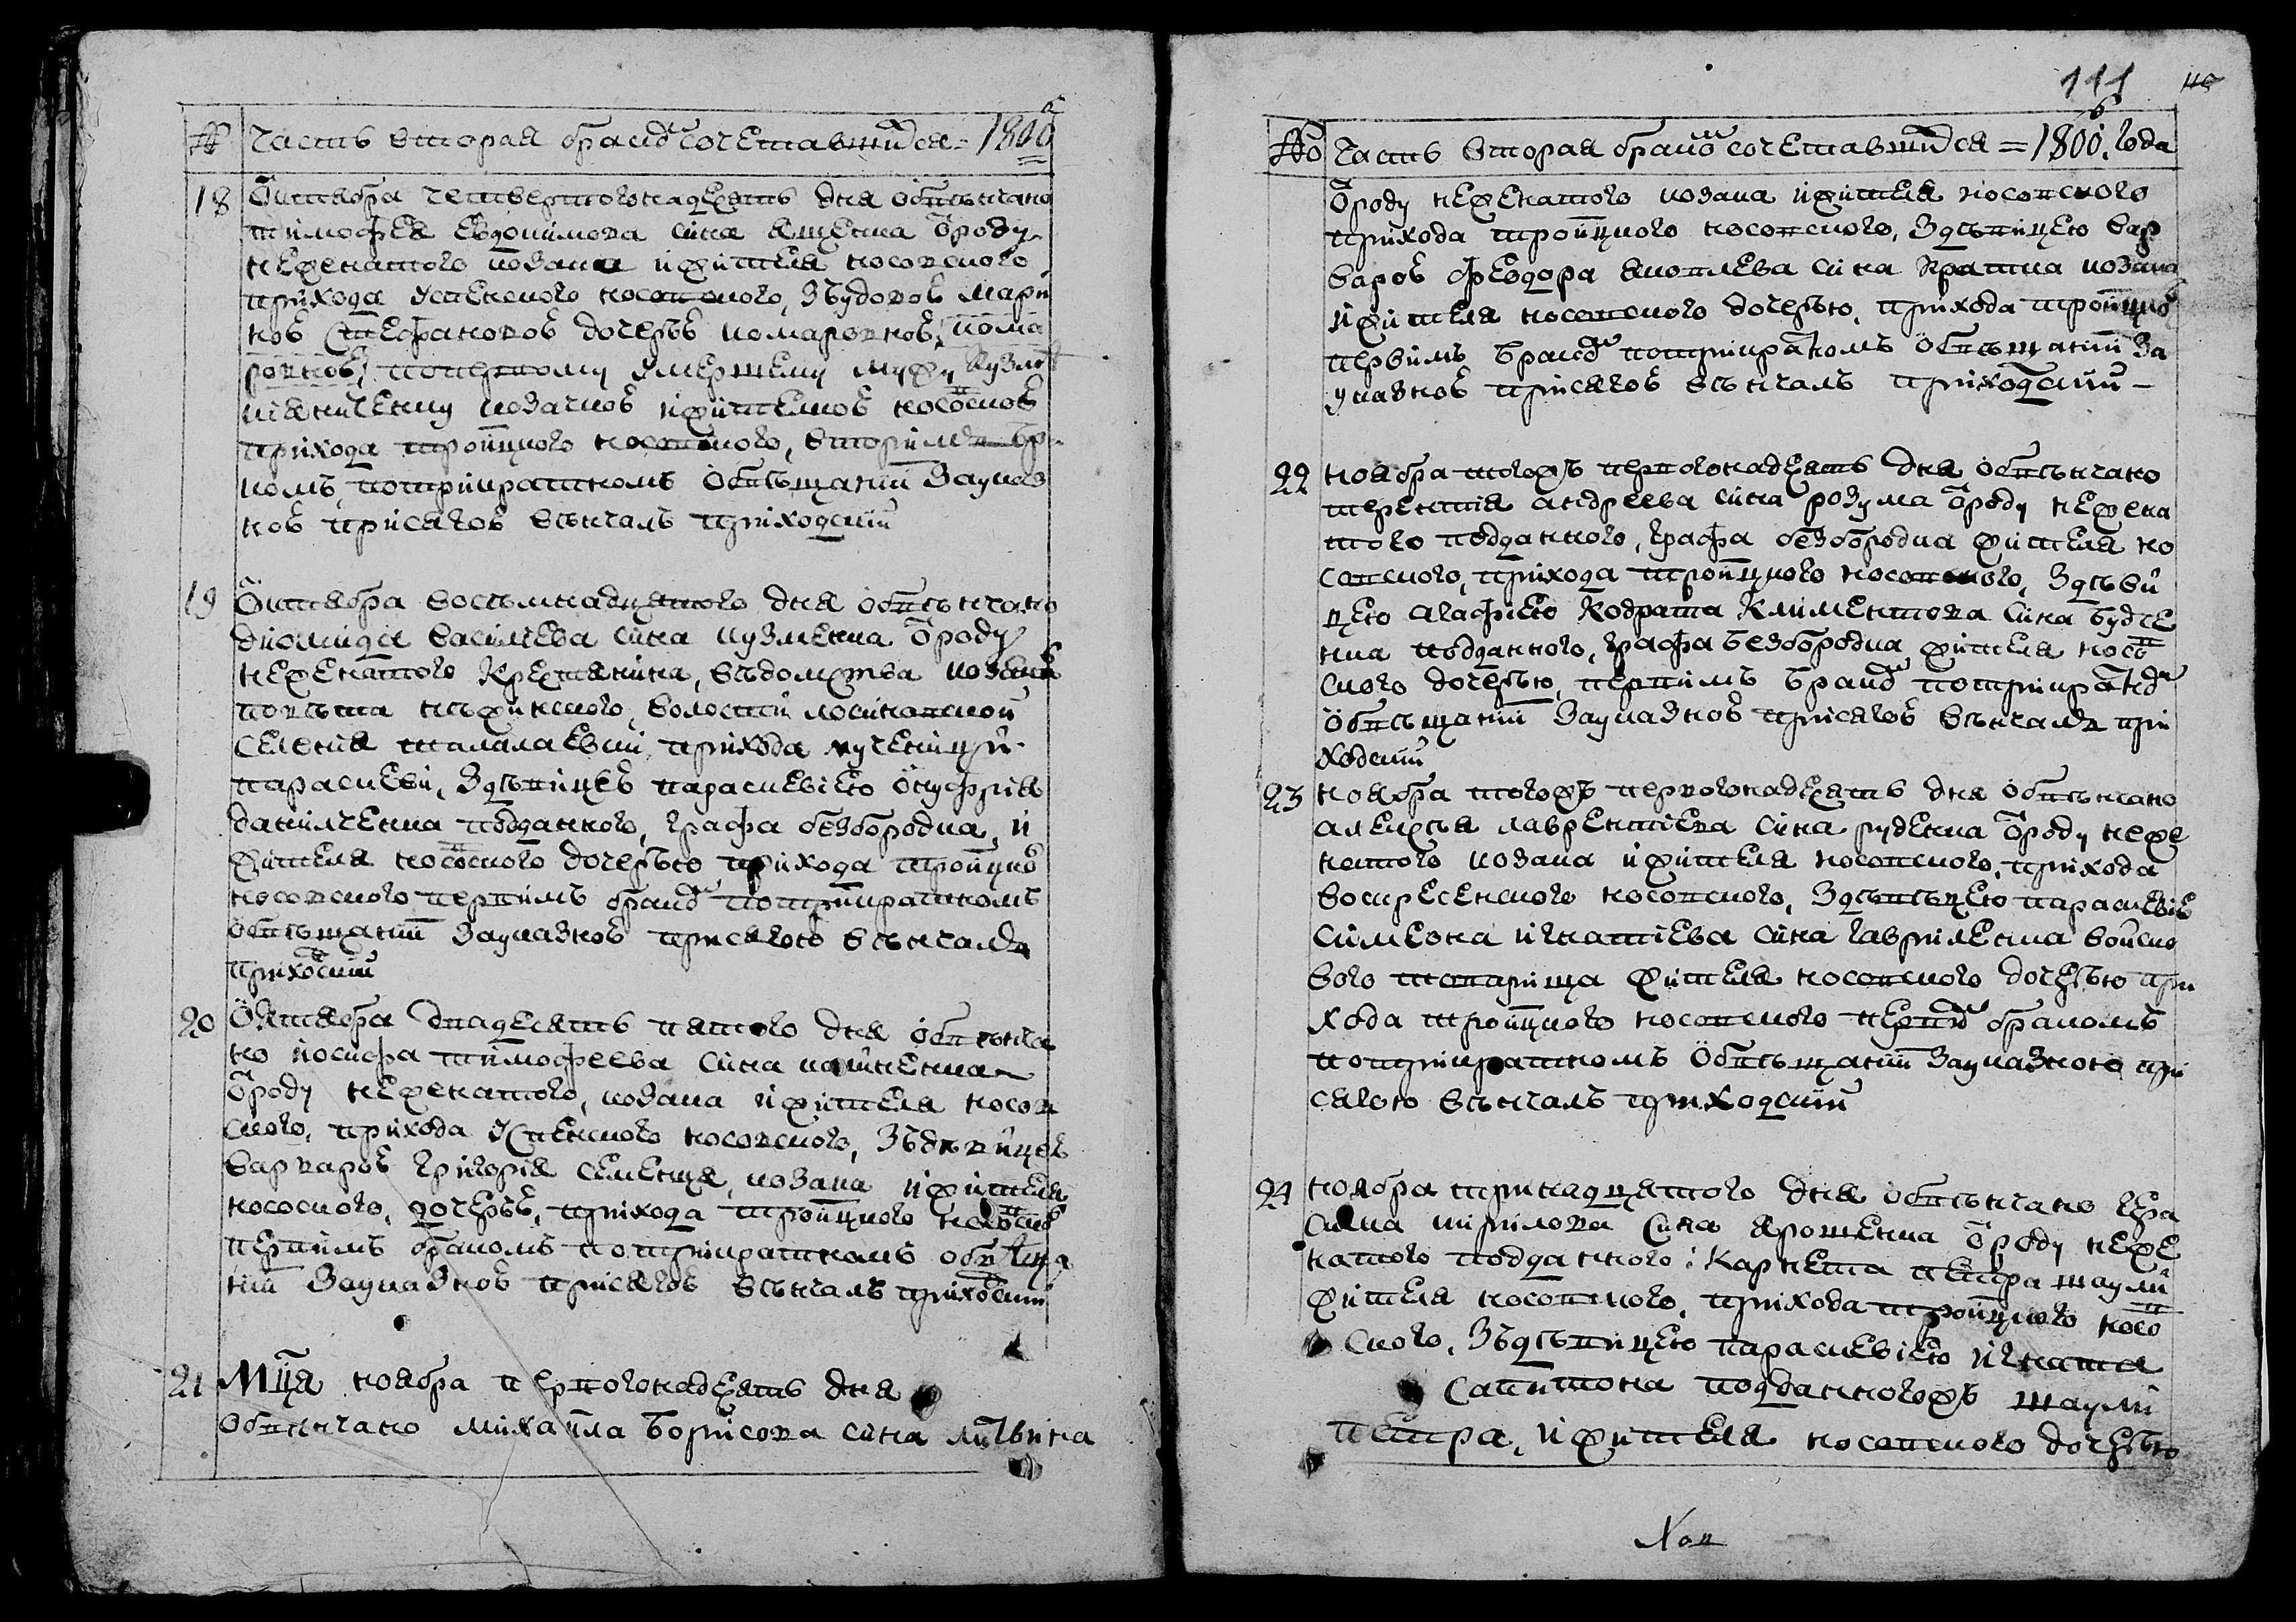 № Часть вторая бракомъ сочетавшихся = 1800
18 Октября четвертогонадесять дня обвѣнчано
тимофея Евдокимова сина ященка отроду
неженатого козака ижителя носовского
прихода успенского носовского, Звдовою мари
ею Стефановою дочерью комаровною,
первому умершему мужу
козачкою ижителкою носовскою
прихода троицкого носовского, вторимъ бра
комъ, потрикратномъ обвѣщании Зауказ
ною присягою вѣнчалъ приходский
19 Октября восѣмнадцатого дня обвѣнчано
диомида василиева сина кузменка отроду
неженатого Крестянина, вѣдомства
повѣта нѣжинского, волости лосиновской
Селения талалаевки, прихода мученици
параскеви, Здѣвицею параскевиею онуфрия
данилченка подданного, графа безбородка, и
жителя носовского дочерью прихода троицко
носовского первимъ бракомъ потрикратномъ
обвѣщании Зауказною присягою вѣнчалъ
приходский
20 Октября двадесять пятого дня обвѣнча
но йосифа тимофеева сина
отроду неженатого, козака ижителя носов
ского, прихода успенского носовского, Здѣвицею
варварою григория семенця, козака ижителя
носовского, дочерью, прихода троицкого носовско
первимъ бракомъ потрикратномъ обвѣща
нии Зауказною присягою вѣнчалъ приходский
21 Мця ноября первогонадесять дня
обвѣнчано михаила борисова сина литвина
111
№ Часть вторая бракомъ сочетавшихся = 1800. года
отроду неженатого козака ижителя носовского
прихода троицкого носовского, Здѣвицею вар
варою феодора яковлева сина кратка козака
ижителя носовского дочерью, прихода троицко
первимъ бракомъ потрикратномъ обвѣщании За
указною присягою вѣнчалъ приходский
22 ноября тогожъ первогонадесять дня обвѣнчано
терентия андреева сина розума отроду нежена
того подданного, графа безбородка жителя но
совского, прихода троицкого носовского, Здѣви
цею агафиею Кодрата Климентова сина будче
нка подданного, графа безбородка жителя носов
ского дочерью, первимъ бракомъ потрикратномъ
обвѣщании Зауказною присягою вѣнчалъ при
ходский
23 ноября тогожъ первогонадесять дня обвѣнчано
алексѣя лаврентиева сина руденка отроду неже
натого козака ижителя носовского, прихода
воскресенского носовского, Здѣвѣцею параскевие
симеона игнатиева сина гавриленка войско
вого товарища жителя носовского дочерью при
хода троицкого носовского первимъ бракомъ
потрикратномъ обвѣщании Зауказною при
сягою вѣнчалъ приходский
24 ноября тринадцятого дня обвѣнчано гера
сима кирилова сина ярошенка отроду неже
натого подданного: Карнета петра
жителя носовского, прихода троицкого носов
ского, Здѣвицею параскевиею игната
Сапитона подданногожъ
петра, ижителя носовского дочерью